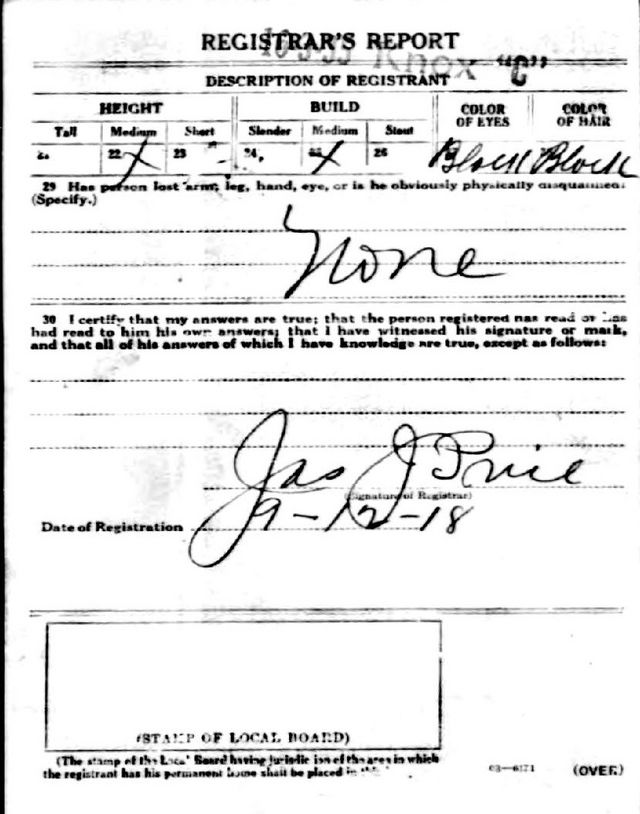 REGISTRAR'S REPORT
10-3-33 Knox "C"
DESCRIPTION OF REGISTRANT
HEIGHT BUILD COLOR OF EYES COLOR OF HAIR
Tall Medium Short Slender Medium Stout
22 X 23 24 X 26 Black Black
29 Has person lost arm, leg, hand, eye, or is he obviously physically disqualified?
(Specify.)
None
30 I certify that my answers are true; that the person registered has read or has
had read to him his own answers; that I have witnessed his signature or mark,
and that all of his answers of which I have knowledge are true, except as follows:
Jas J Price
(Signature of Registrar)
Date of Registration 9-12-18
(STAMP OF LOCAL BOARD)
(The stamp of the Local Board having jurisdiction of the area in which
the registrant has his permanent home shall be placed in this
03—6171 (OVER)